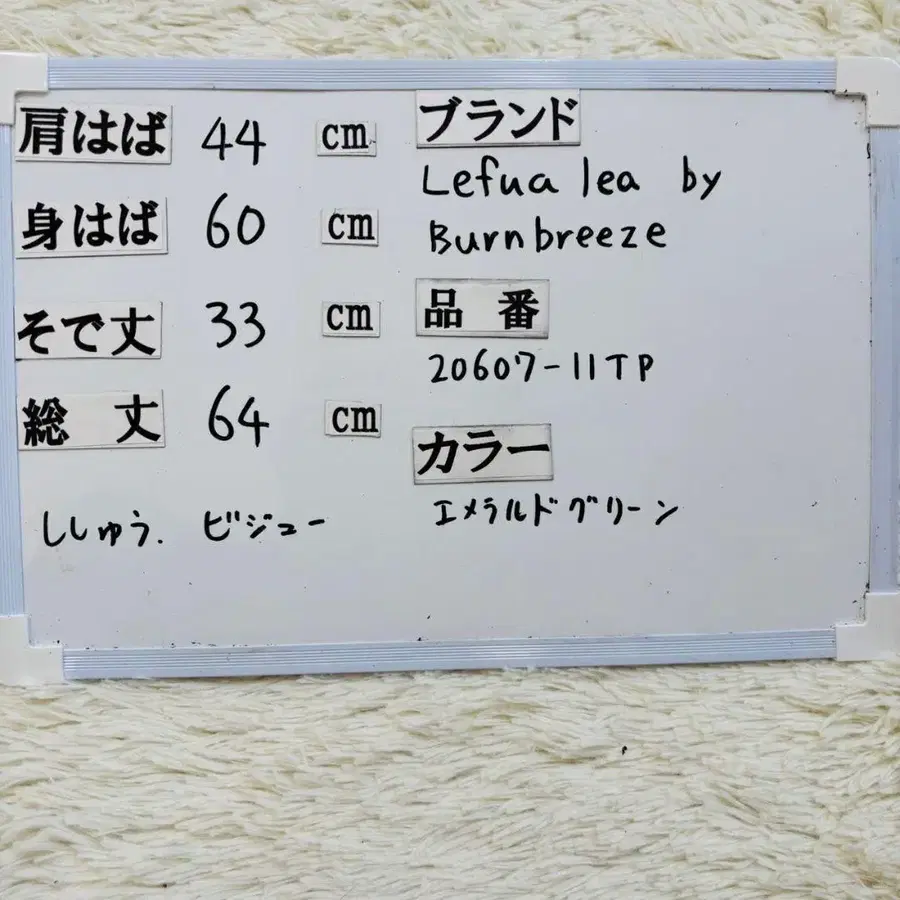 肩はば 44 cm
身はば 60 cm
そで丈 33 cm
総 丈 64 cm
ししゅう. ビジュー
ブランド
Lefua lea by
Burnbreeze
品 番
20607-11TP
カラー
エメラルドグリーン